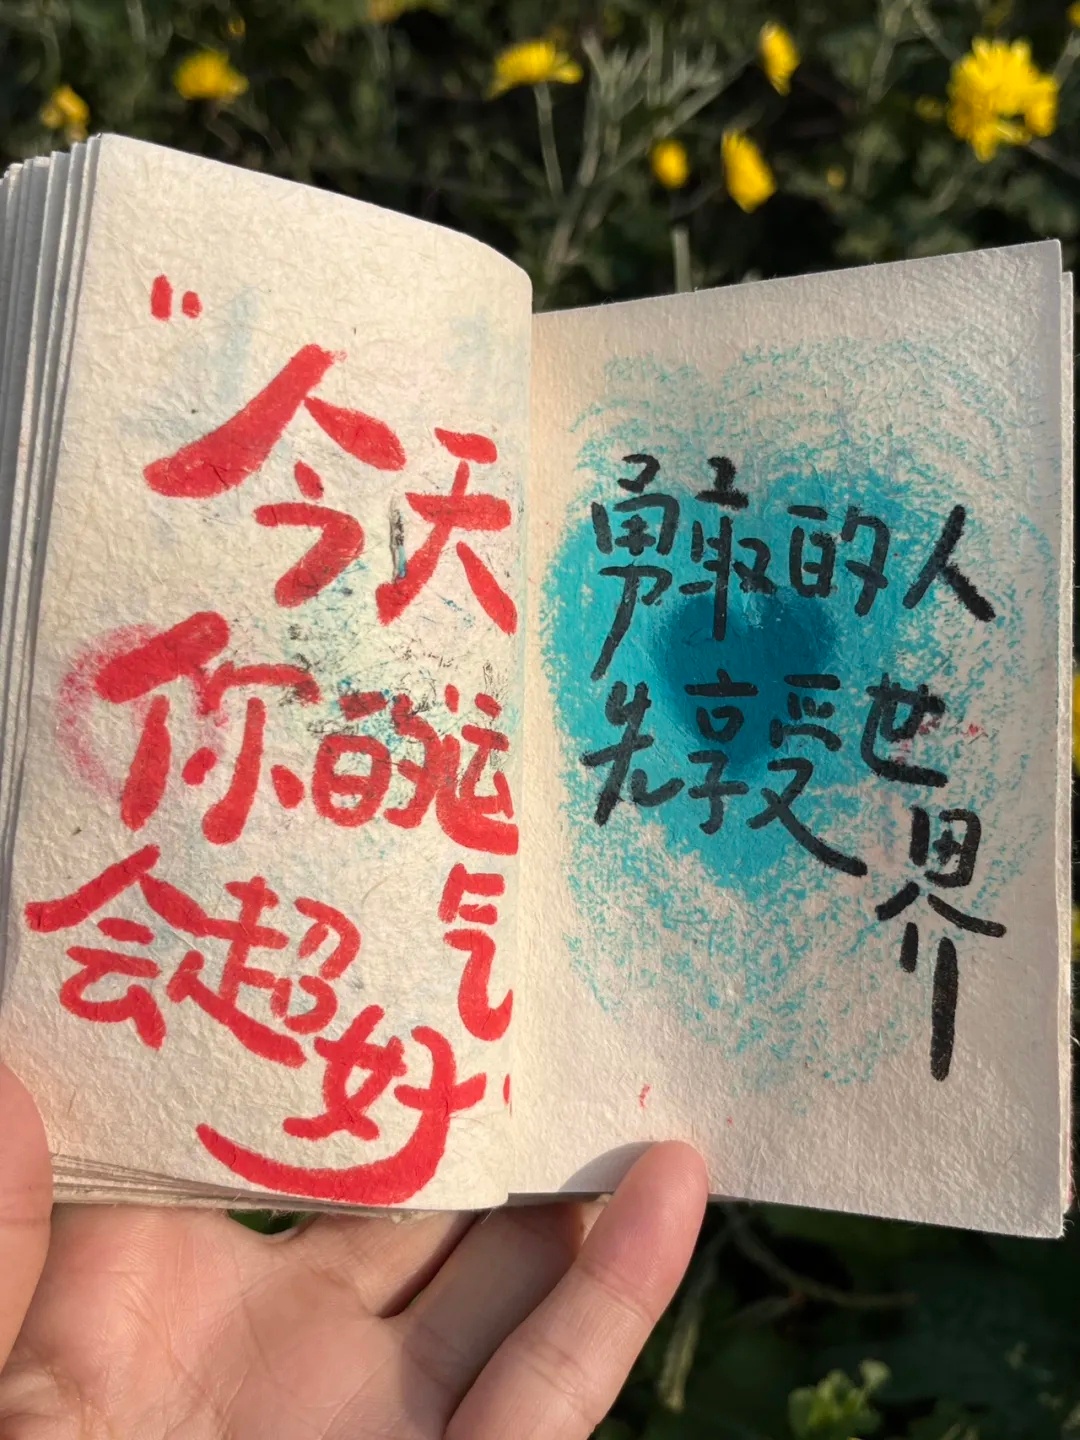 "今天
你的运气
会超好
勇敢的人
先享受世界